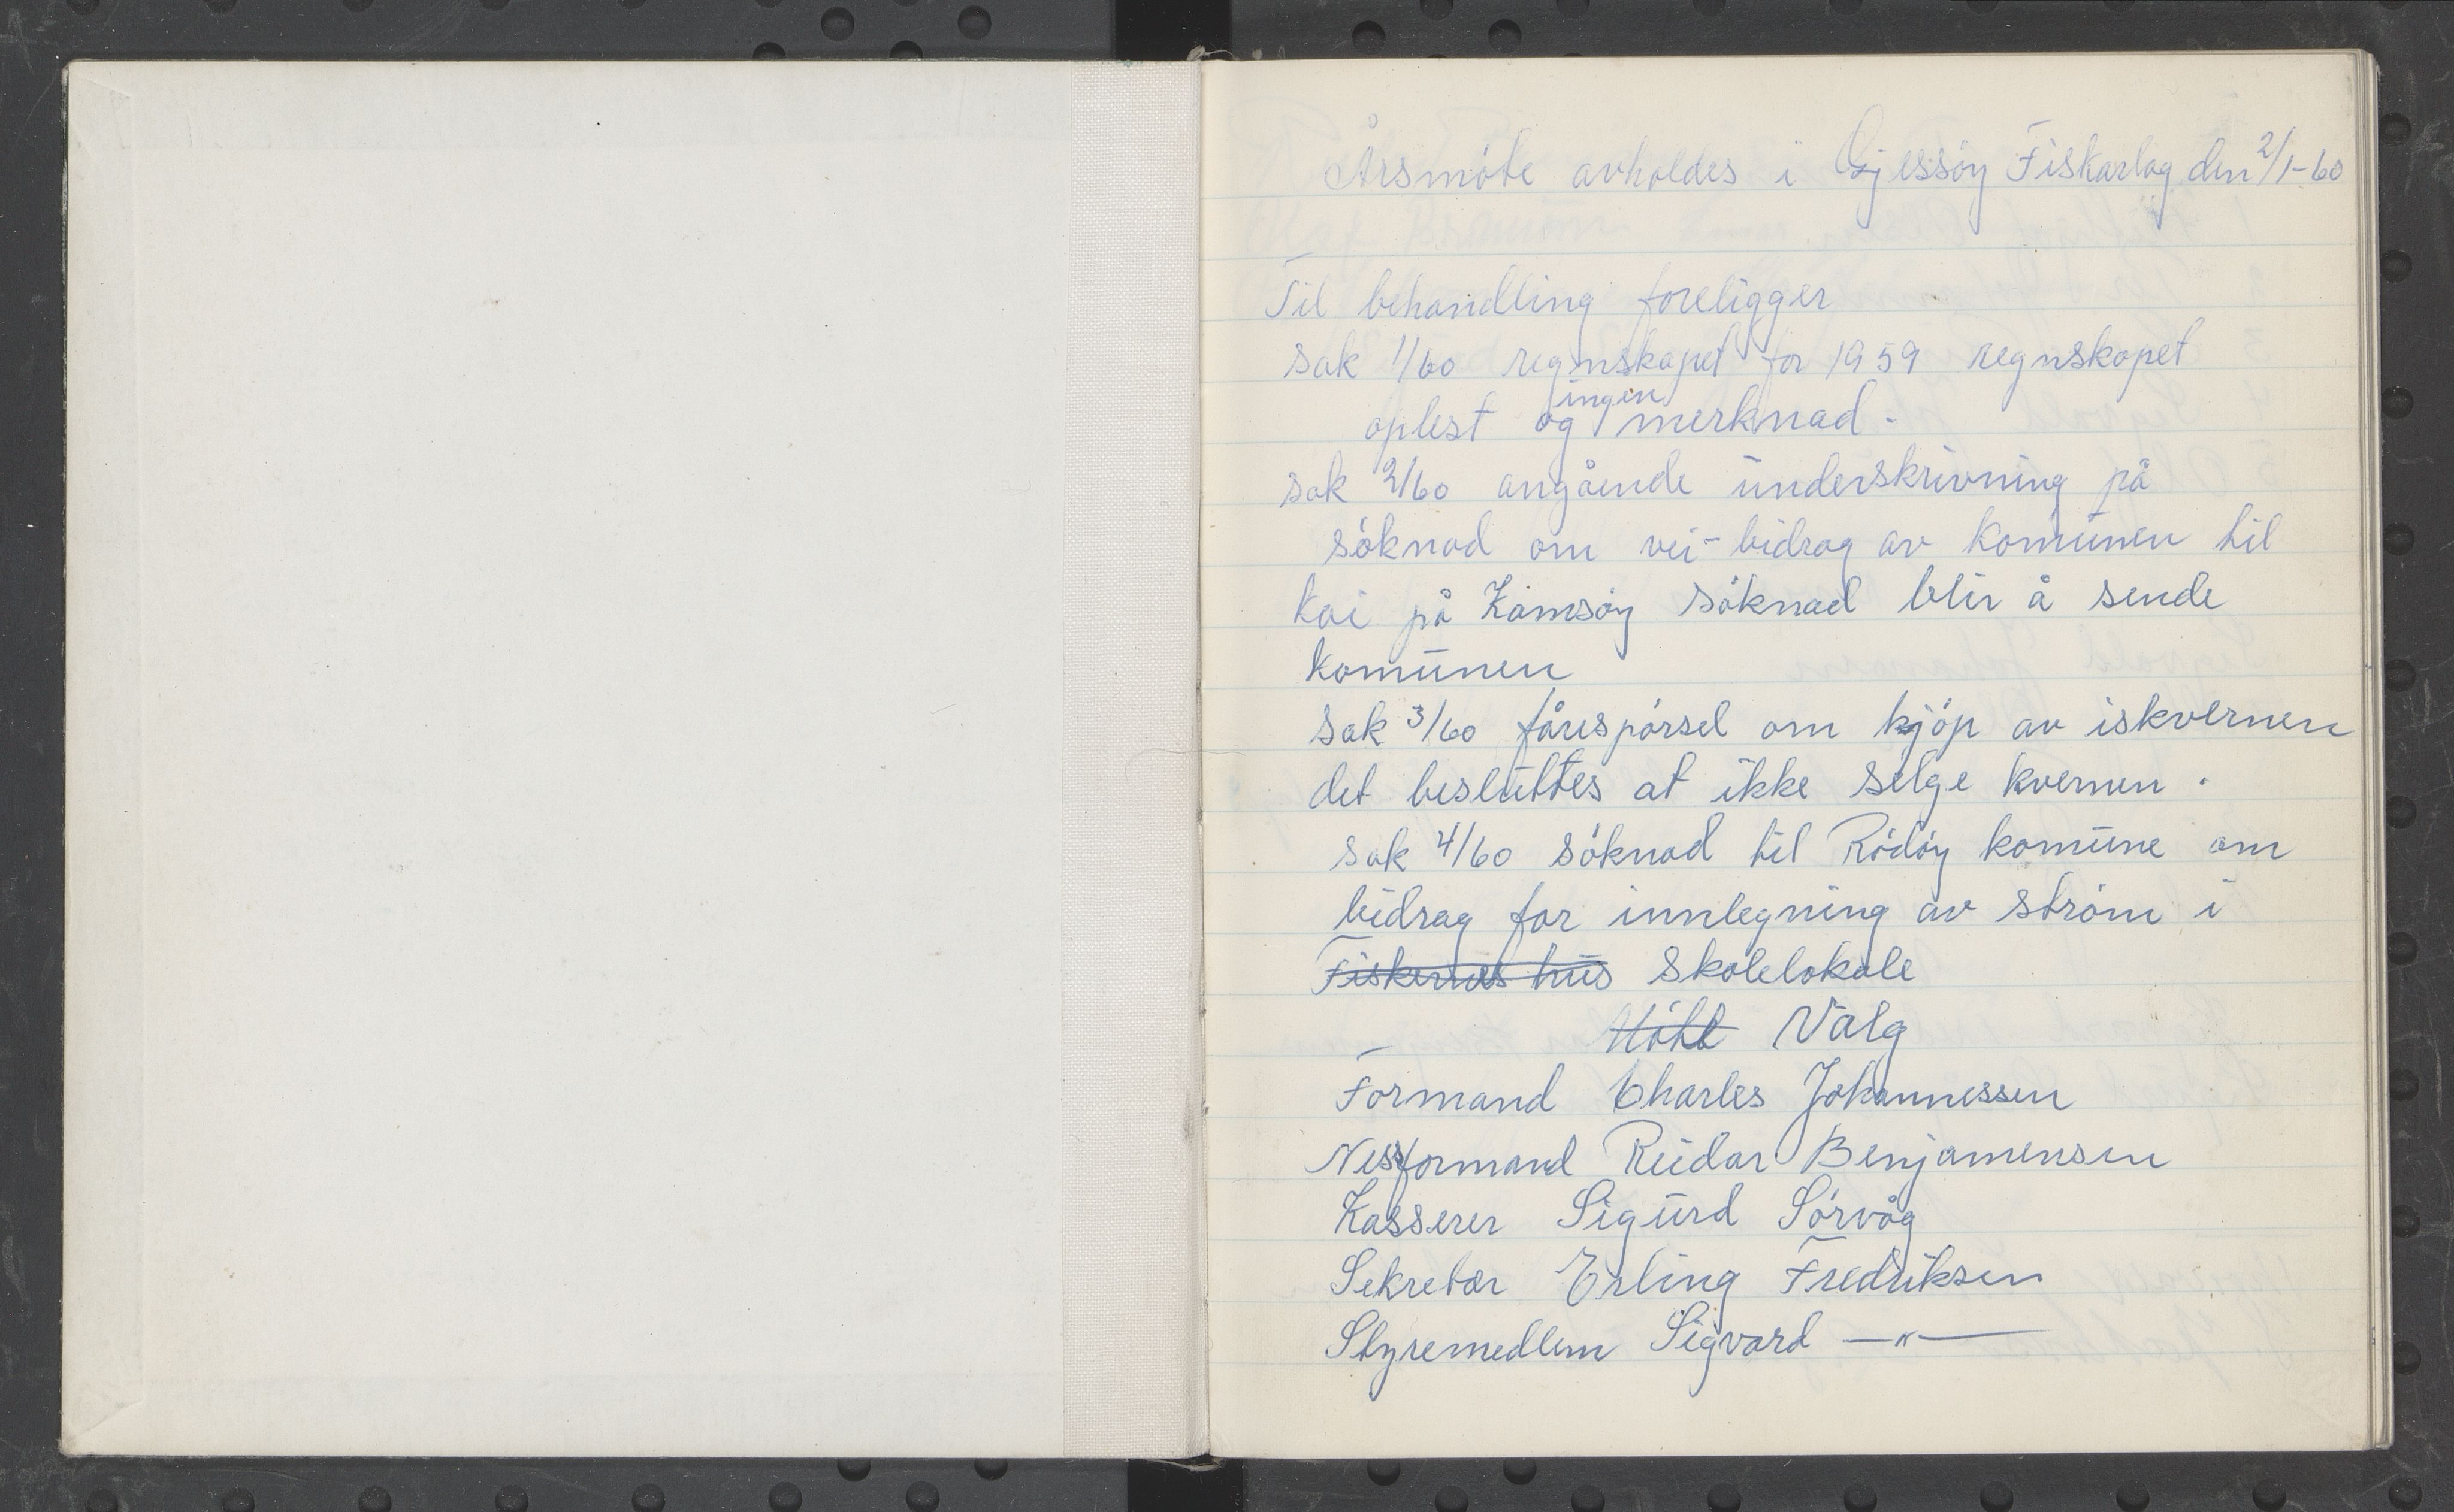 Årsmöte avholdes i Gjessöy Fiskarlag den 2/1-60
Til behandling foreligger
sak 1/60 regnskapet for 1959 regnskapet
ingen
oplest og merknad.
sak 2/60 angående underskrivning på
söknad om vei-bidrag av komunen til
kai på Kamsöy söknad blir å sende
komunen
sak 3/60 fårespörsel om kjöp av iskvernen
det besluttes at ikke selge kvernen.
sak 4/60 söknad til Rödöy komune om
bidrag for innlegning av ström i
Fiskernes hus skolelokale
Valg
Formand Charles Johannessen
Nesformand Reidar Benjamensen
Kasserer Sigurd Sörvåg
Sekretær Erling Fredriksen
Styremedlem Sigvard —"—